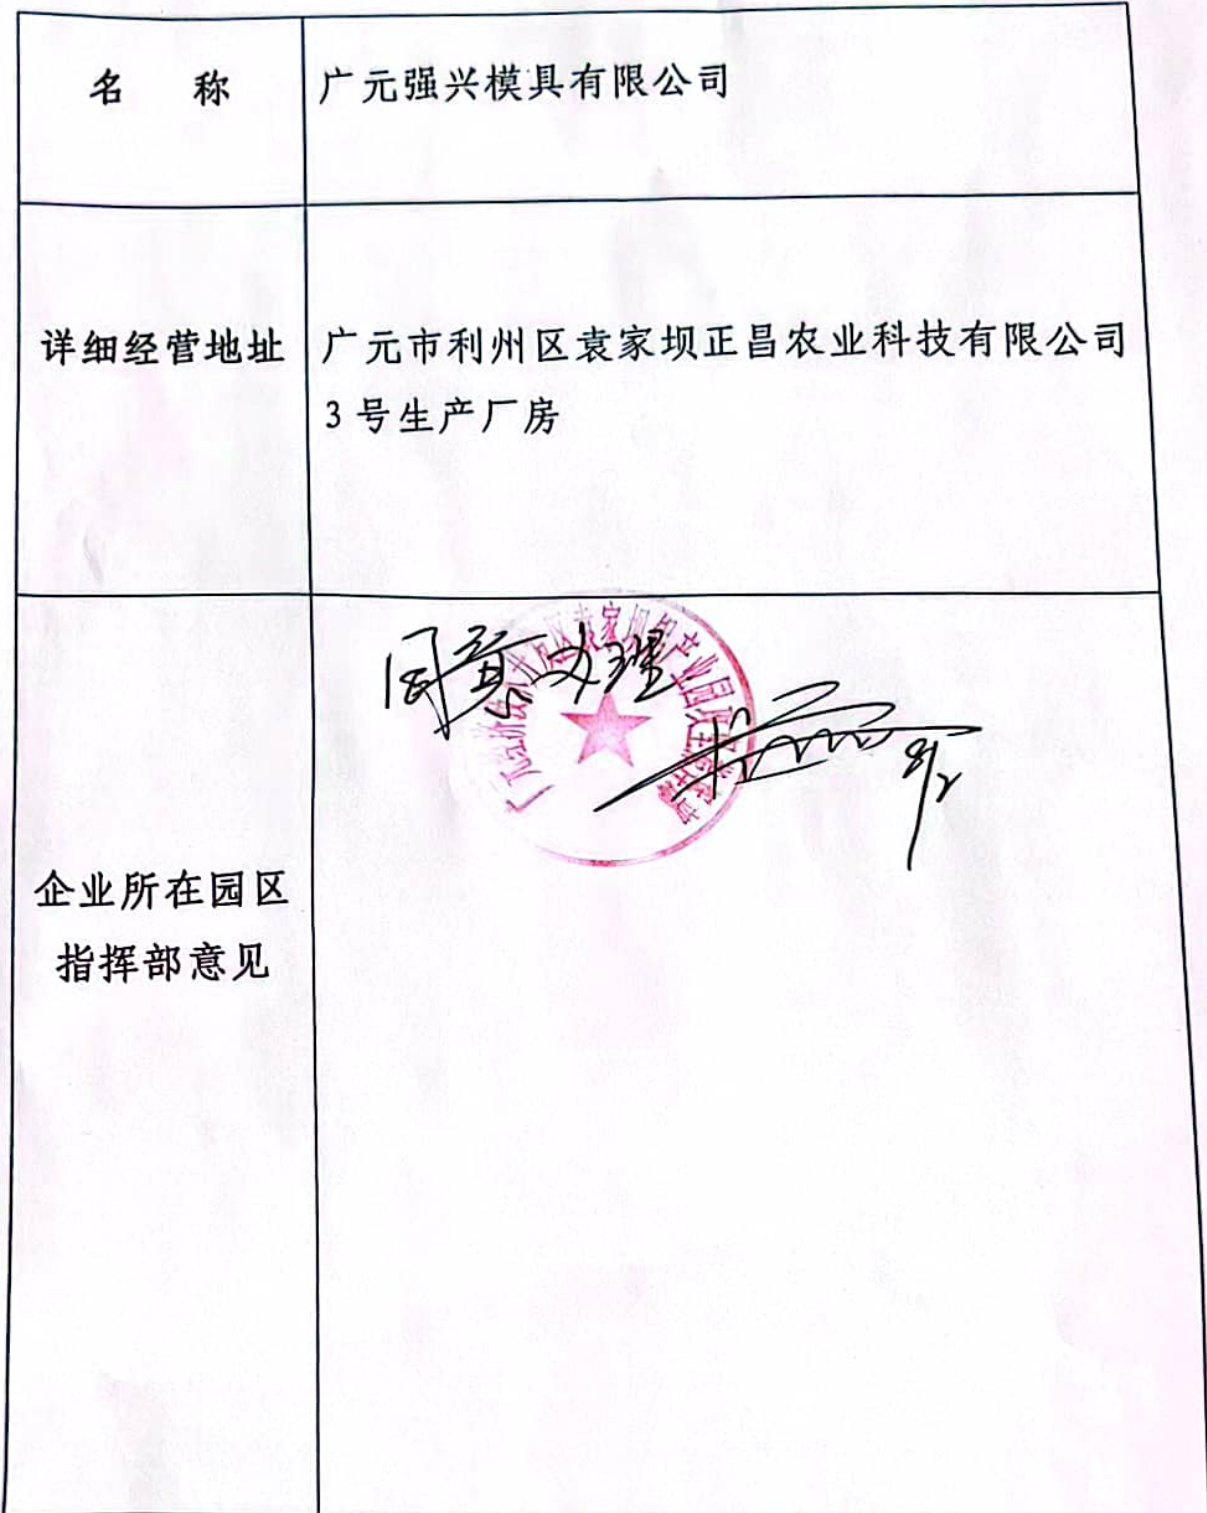 名 称
广元强兴模具有限公司
详细经营地址
广元市利州区袁家坝正昌农业科技有限公司
3号生产厂房
企业所在园区
指挥部意见
同意办理